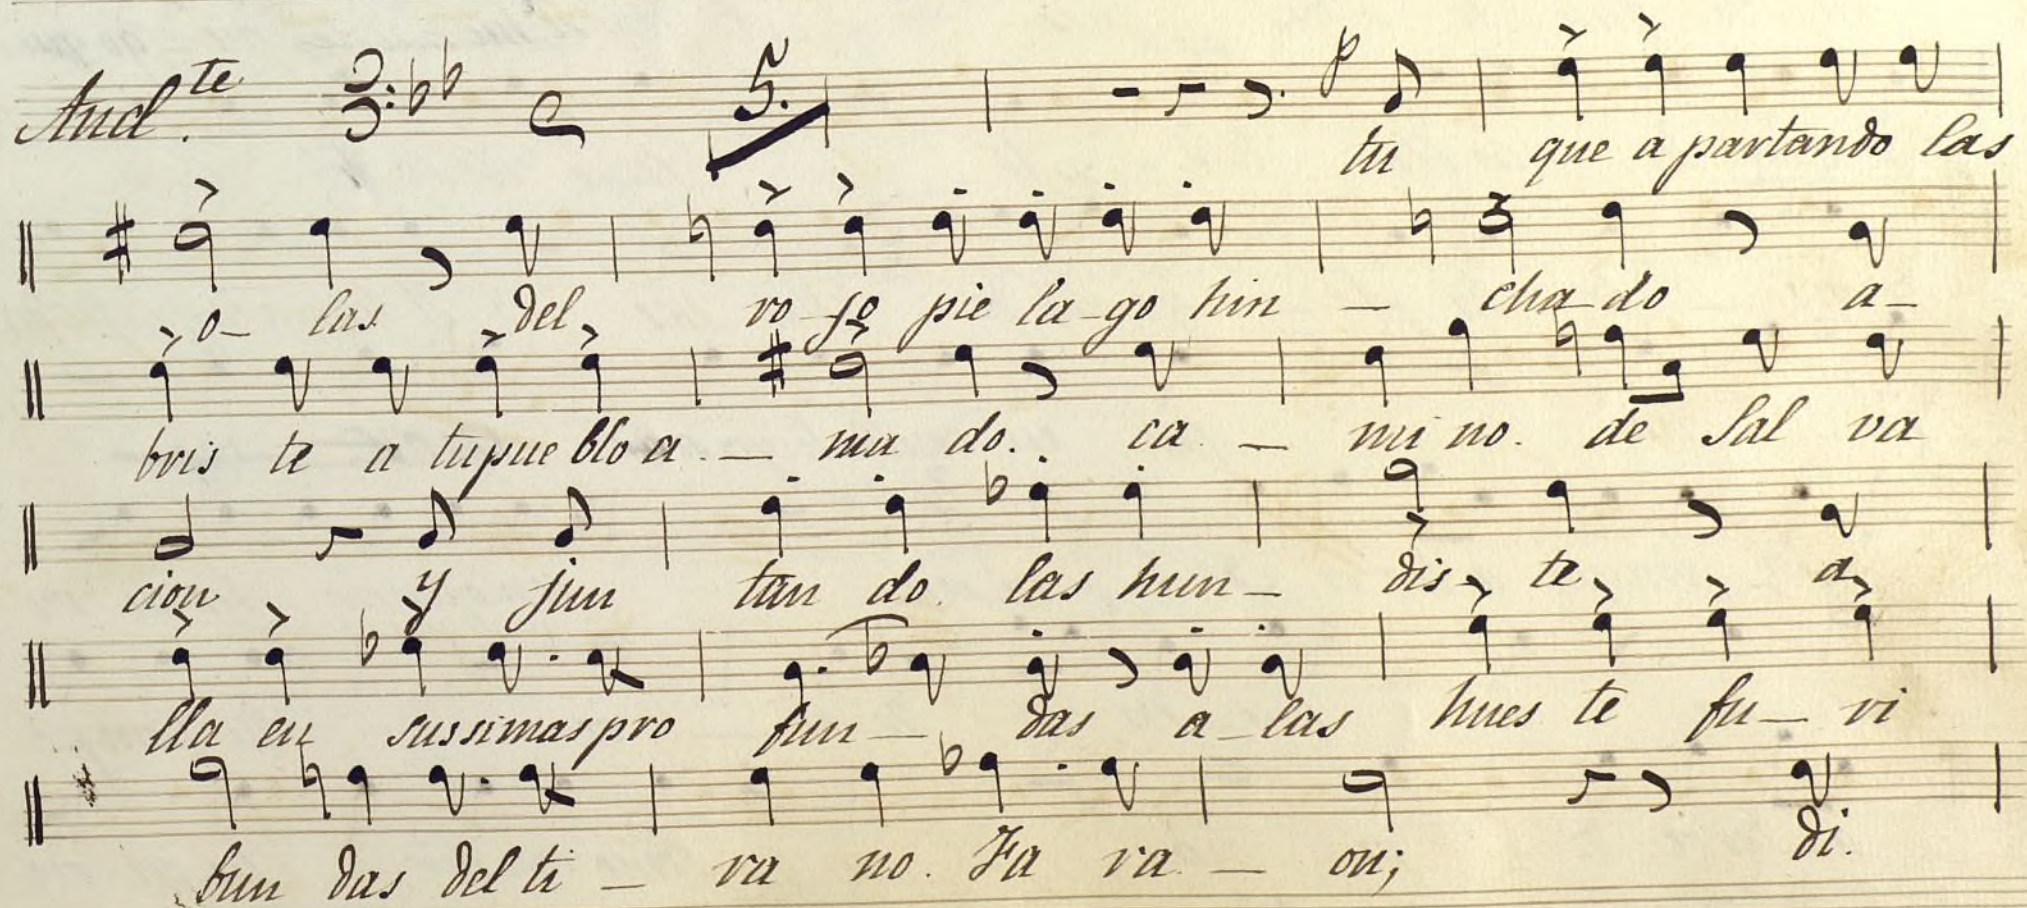 Andte. 5. p
tu que a partando las
o- las del ro-jo pie la-go hin - cha-do a-
bris te a tu pue blo a. - ma do. ca. - mi no. de Sal va
cion y jun tan do. las hun- dis- te a
lla en sus simas pro fun - das a-las hues te fu- ri
bun das del ti - ra no. Fa ra. - on; di.